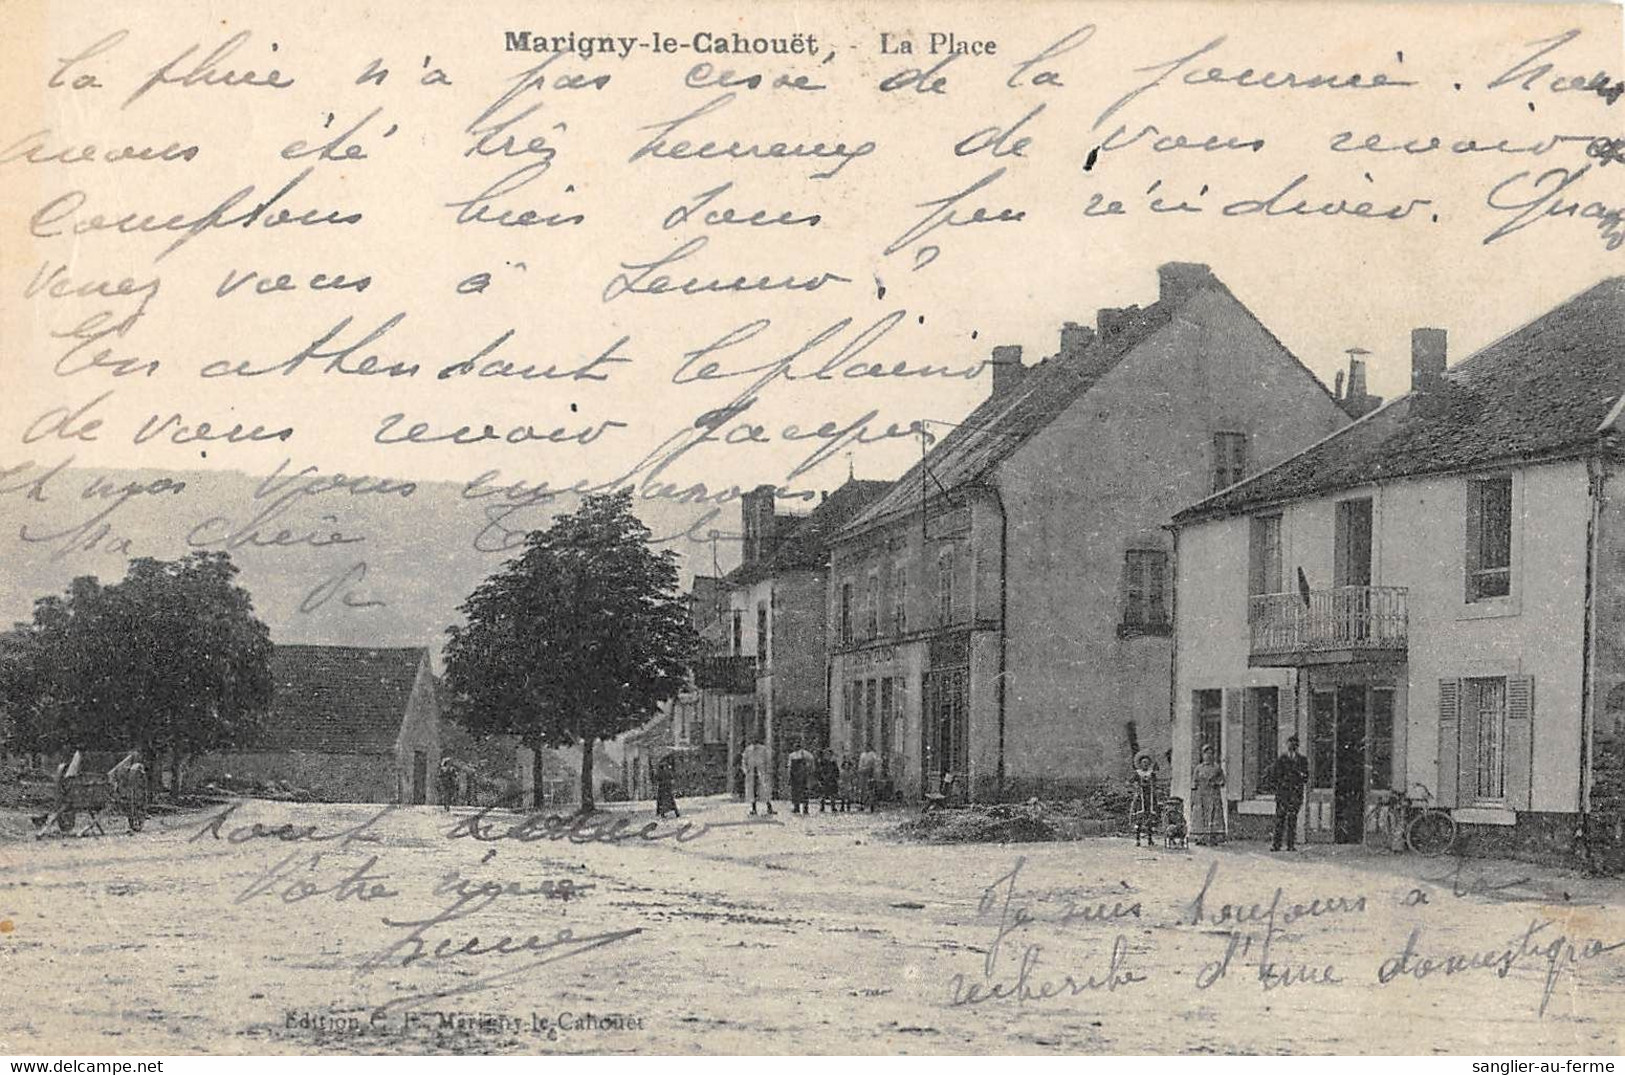 Marigny-le-Cahouët. - La Place
la pluie n'a pas cessé de la journée. Nous
avons été très heureux de vous revoir et
comptons bien sous peu récidiver. Quand
venez vous à Semur?
En attendant le plaisir
de vous revoir Jacques
et moi vous embrassons
Ma chère
de
tout
Votre nièce
Je suis toujours à la
recherche d'une domestique
Edition C. F. Marigny-le-Cahouët
sanglier-au-ferme